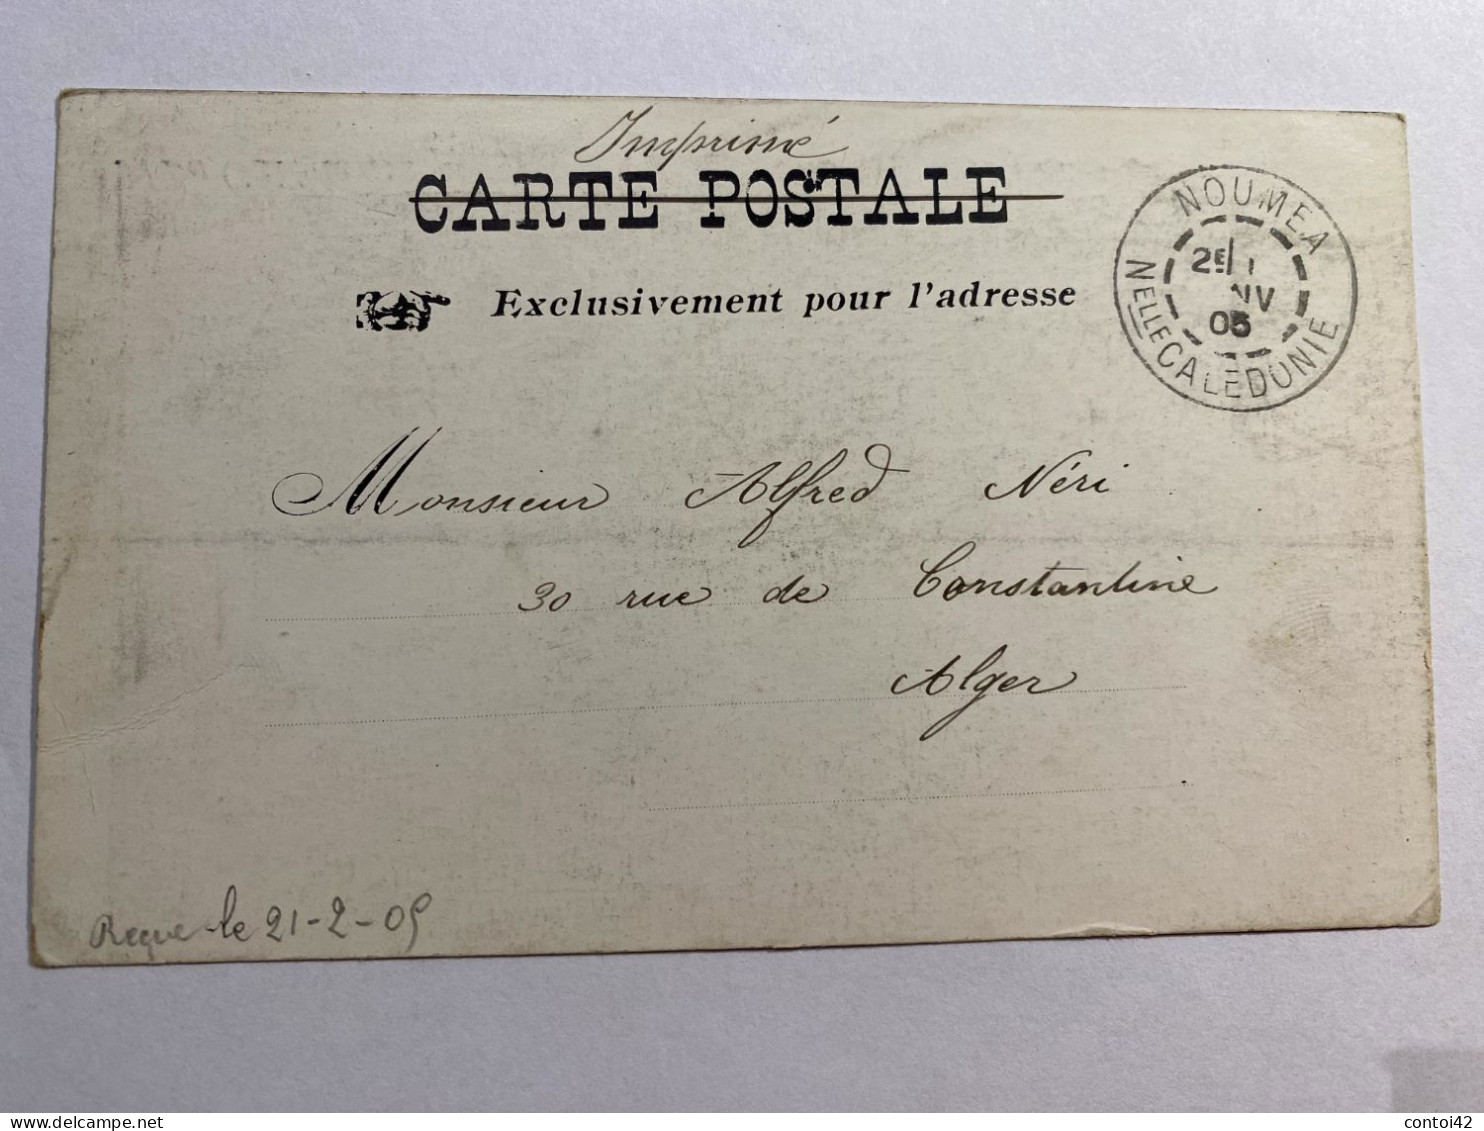 Imprimé
CARTE POSTALE
Exclusivement pour l'adresse
NOUMEA
2E/
05
NELLE CALEDONIE
Monsieur Alfred Néri
30 rue de Constantine
Alger
Reçue le 21-2-05
contoi42